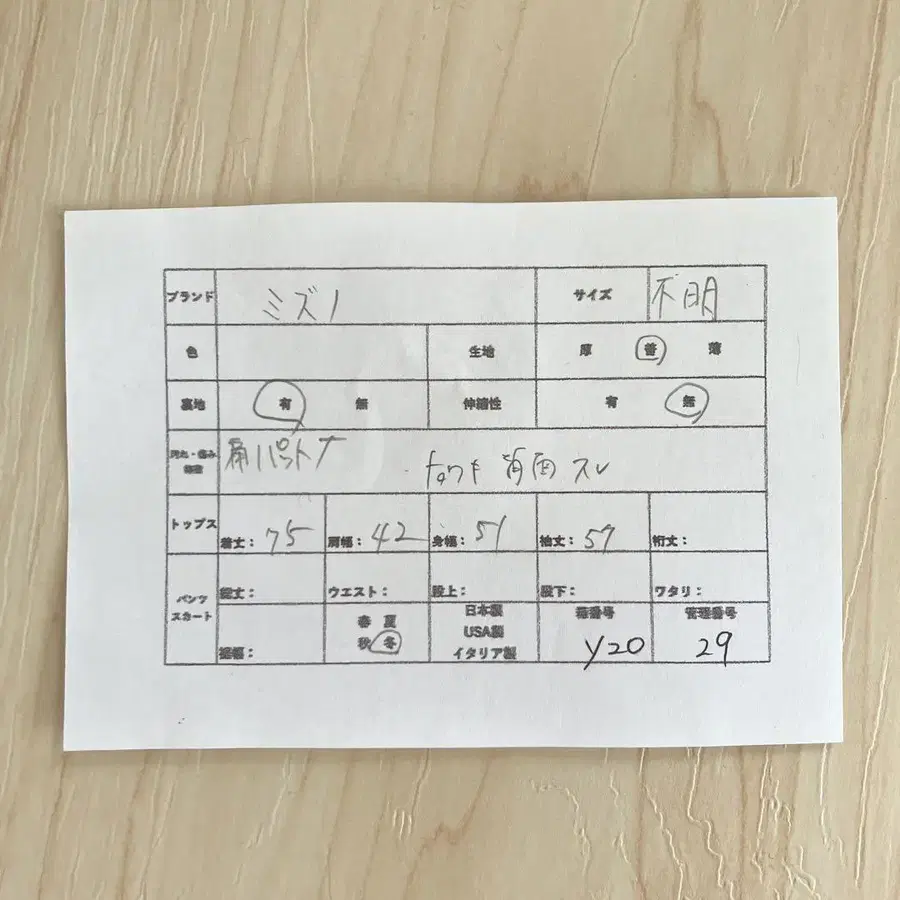 ブランド ミズノ サイズ 不明
色 生地 厚 普 薄
裏地 有 無 伸縮性 有 無
汚れ・傷み
肩パットナ 背面 スレ
トップス 着丈:75 肩幅:42 身幅:51 袖丈:57 裄丈:
パンツ
スカート
総丈: ウエスト: 股上: 股下: ワタリ:
裾幅:
春 夏
秋 冬
日本製
USA製
イタリア製
箱番号
y20
管理番号
29